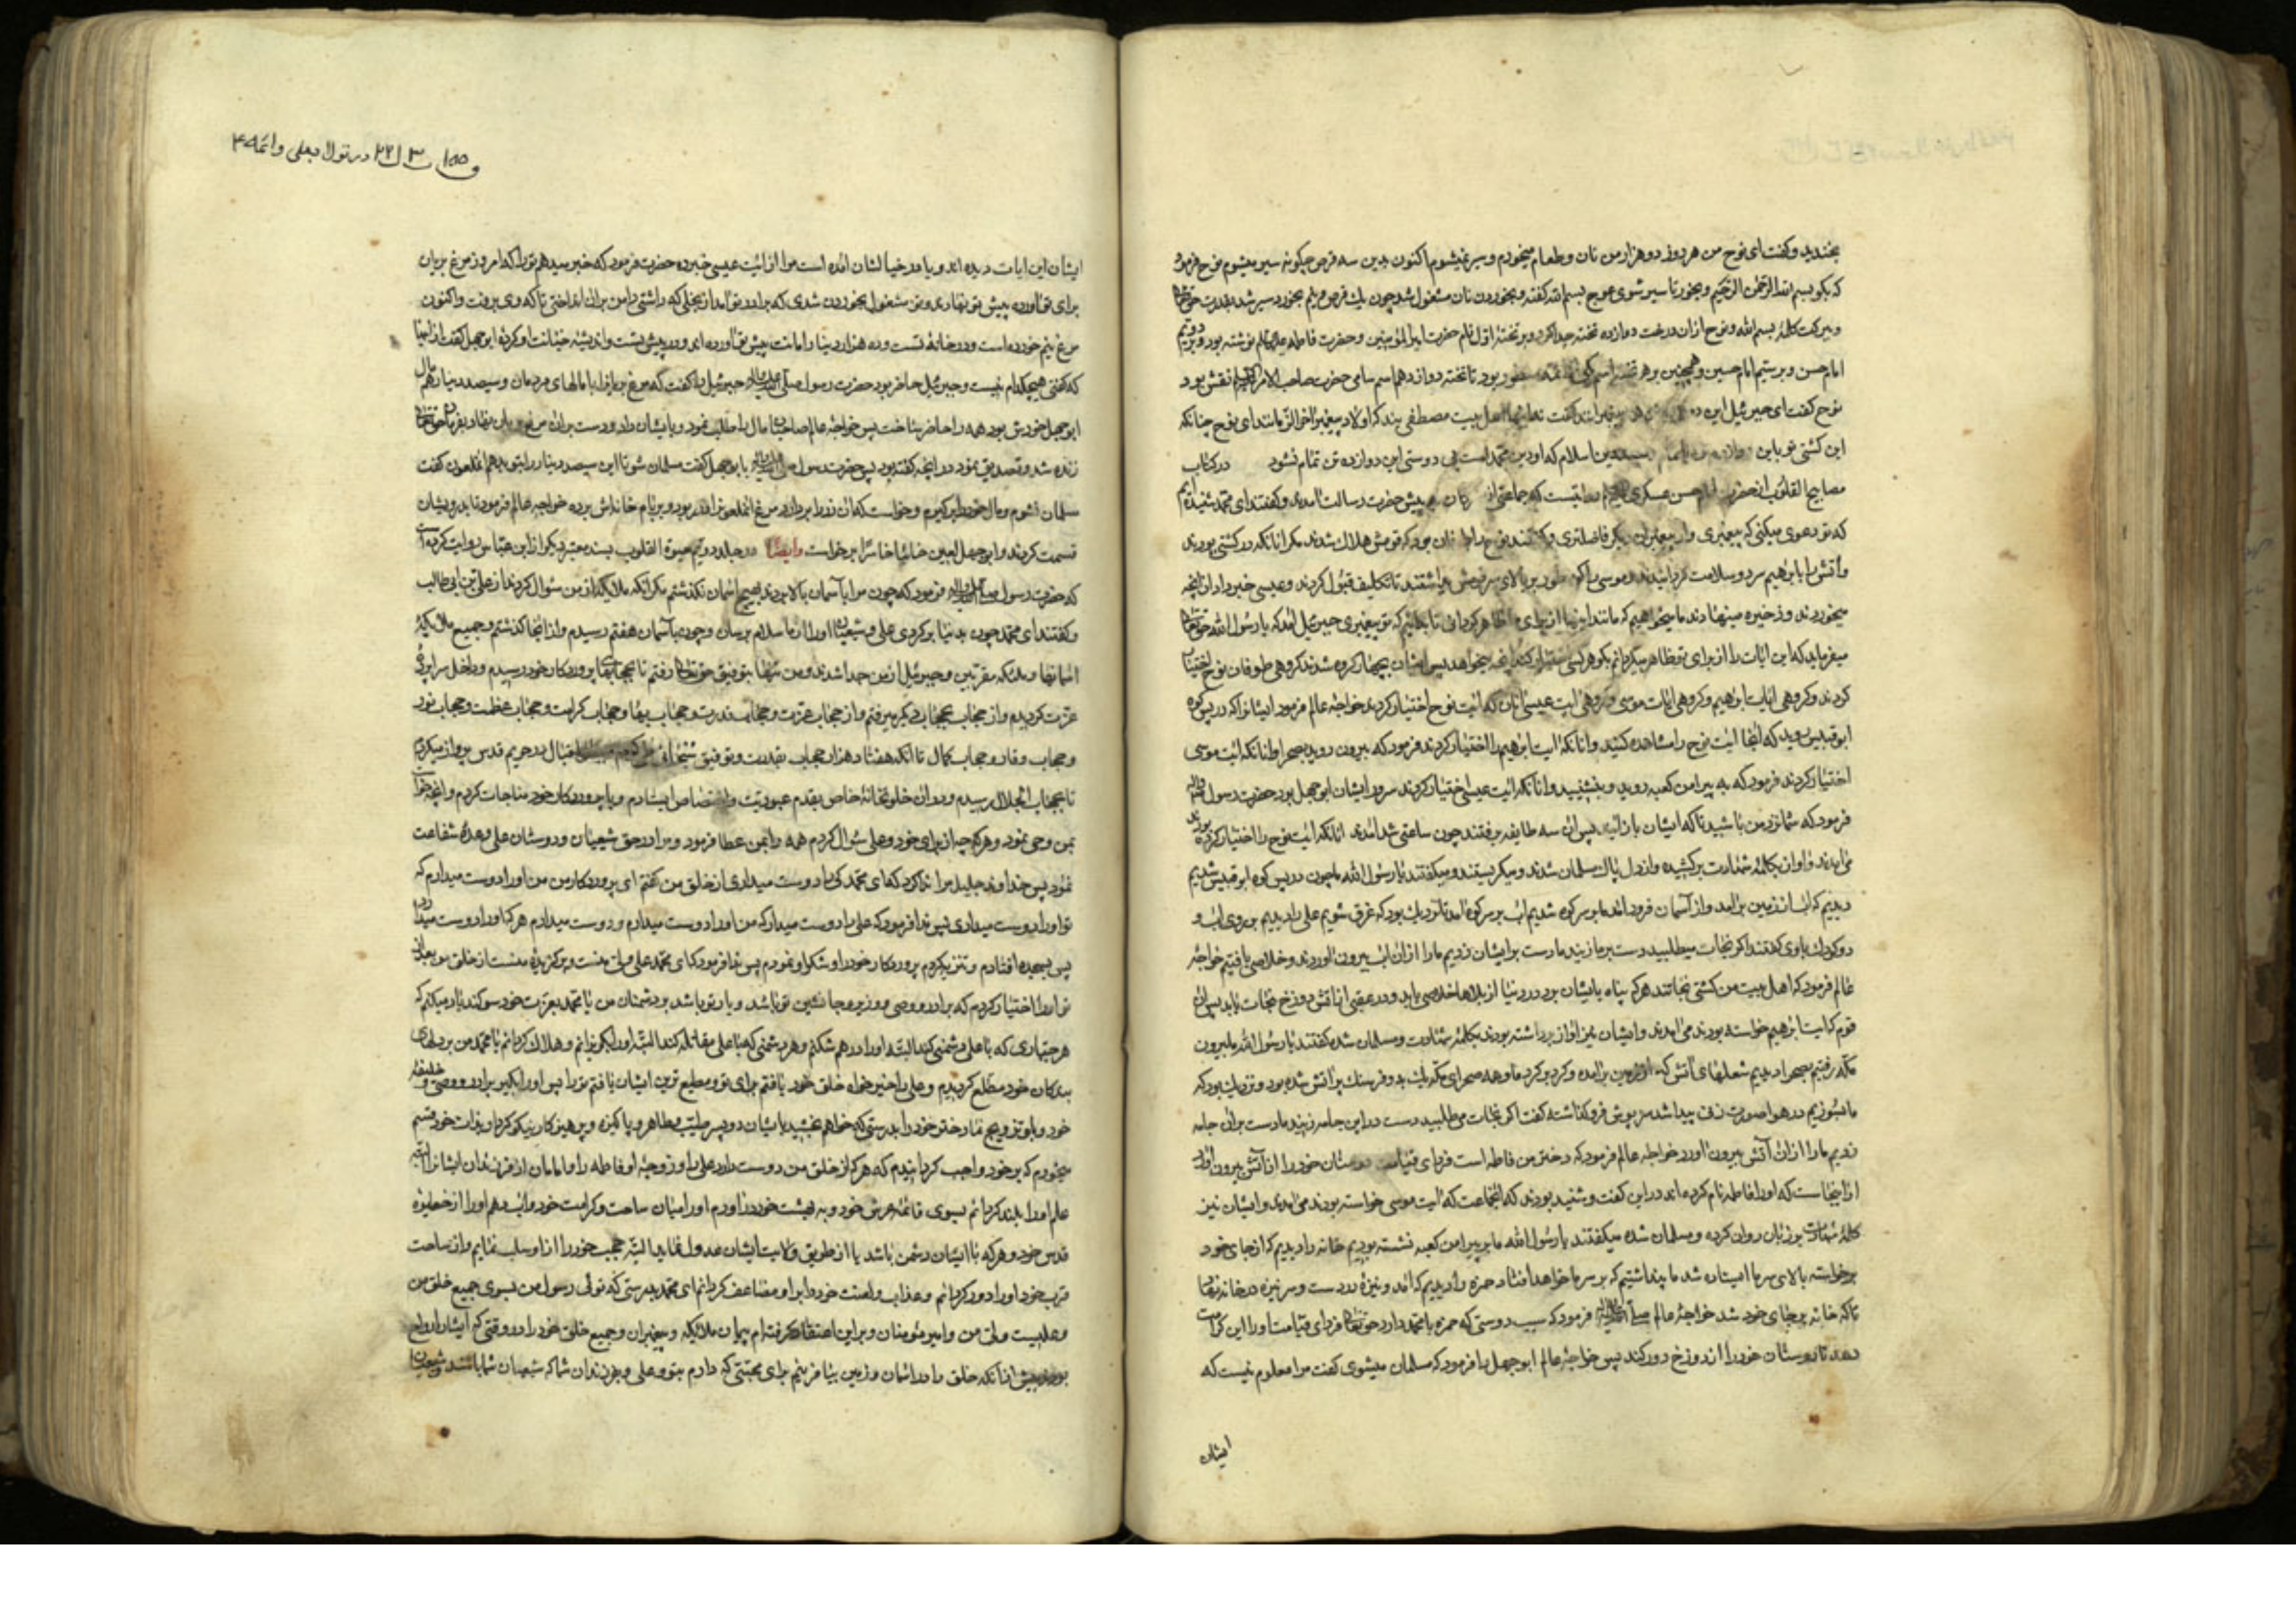 بخندید و کفت ای نوح من هر روز دو هزار من نان و طعام میخورم و سیر نمیشوم اکنون بدین سه قرص چکونه سیر میشوم نوح فرمود
که بکو بسم الله الرحمن الرحیم و بخور تا سیر شوی عوج بسم الله کفته و بخوردن نان مشغول شد چون یک قرص و نیم بخورد سیر شد بقدرت حق تعالی
و ببرکت کلمهٔ بسم الله و نوح از ان درخت دوازده تخته جدا کرد و بر تختهٔ اول نام حضرت امیر المؤمنین و حضرت فاطمه علیهما السلام نوشته بود و بر دویم
امام حسن و بر سیم امام حسین و همچنین بر هر تخته اسم بود تا تخته دوازدهم اسم سامی حضرت صاحب الامر نقش بود
نوح کفت ای جبرئیل این کفت اهل بیت مصطفی یند که اولاد پیغمبر اخر الزمانند ای نوح چنانکه
این کشتی تو باین دین اسلام که او دین محمد است بی دوستی این دوازده تن تمام نشود در کتاب
مصابیح القلوب از حضرت امام حسن عسکری روایتست که جماعتی از پیش حضرت رسالت امدند و کفتند ای محمد شنیده ایم
که تو دعوی میکنی که پیغمبری و از پیغمبران دیکر فاضلتری و نوح را بود که قومش هلاک شدند مکر انانکه در کشتی بودند
و اتش را بابراهیم سرد و سلامت کردانیدند و موسی را کوه طور بر بالای سر قومش بداشتند تا تکلیف قبول کردند و عیسی خبر داد از انچه
میخوردند و ذخیره مینهادند ما میخواهیم که مانند اینها از برای ما ظاهر کردانی تا بدانیم که تو پیغمبری جبرئیل امد که یا رسول الله حق تعالی
میفرماید که این ایات را از برای تو ظاهر میکردانم بکو هر کسی انچه میخواهد پس ایشان بچهار کروه شدند کروهی طوفان نوح اختیار
کردند و کروهی ایات ابراهیم و کروهی ایات موسی و کروهی ایت عیسی انان که ایت نوح اختیار کردند خواجهٔ عالم فرمود ایشانرا که در پس کوه
ابو قبیس روید که انجا ایت نوح را مشاهده کنید و انانکه ایت ابراهیم را اختیار کردند فرمود که بیرون روید بصحرا و انانکه ایت موسی
اختیار کردند فرمود که به پیرامن کعبه روید و بنشینید و انانکه ایت عیسی اختیار کردند سرور ایشان ابو جهل بود حضرت رسول
فرمود که شما نزد من باشید تا که ایشان باز ایند پس ان سه طایفه برفتند چون ساعتی شد امدند انانکه ایت نوح را اختیار کرده بودند
می امدند و اواز بکلمهٔ شهادت برکشیده و از دل پاک مسلمان شدند و میکریستند و میکفتند یا رسول الله ما چون در پس کوه ابو قبیس شدیم
دیدیم که اب از زمین بر امد و از آسمان فرود امد ما بر سر کوه شدیم اب بر سر کوه امد تا نزدیک بود که غرق شویم علی را دیدیم بر روی اب و
دو کودک با وی کفتند اکر نجات میطلبید دست بر ما زنید ما دست بر ایشان زدیم ما را از ان اب بیرون اوردند و خلاصی یافتیم خواجهٔ
عالم فرمود که اهل بیت من کشتی نجاتند هر که پناه بایشان برد در دنیا از بلاها خلاصی یابد و در عقبی از اتش دوزخ نجات یابد پس ان
قوم که ایت ابراهیم خواسته بودند می امدند و ایشان نیز اواز برداشته بودند بکلمهٔ شهادت و مسلمان شده کفتند یا رسول الله ما بیرون
مکه رفتیم بصحرا دیدیم شعلهای آتش که از زمین بر امده و کرد بر کرد ما و همه صحرای مکه یک بدو فرسنک پر آتش شده بود و نزدیک بود که
ما بسوزیم در هوا صورت زنی پیدا شد سرپوش فرو کذاشته کفت اکر نجات می طلبید دست در این جامه زنید ما دست بر ان جامه
زدیم ما را از ان آتش بیرون اورد خواجه عالم فرمود که دختر من فاطمه است فردای قیامت دوستان خود را از آتش بیرون اورد
از اینجاست که او را فاطمه نام کرده اند در این کفت و شنید بودند که انجماعت که ایت موسی خواسته بودند می امدند و ایشان نیز
کلمهٔ شهادت بر زبان روان کرده و مسلمان شده میکفتند یا رسول الله ما بر پیرامن کعبه نشسته بودیم خانه را دیدیم که از جای خود
برخواسته بالای سر ما ایستاده شد ما پنداشتیم که بر سر ما خواهد افتاد حمزه را دیدیم که امد و نیزهٔ در دست و سر نیزه در خانه نهاد
تا که خانه بر جای خود شد خواجهٔ عالم فرمود که سبب دوستی که حمزه با محمد دارد حق تعالی فردای قیامت او را این کرامت
دهد تا دوستان خود را از دوزخ دور کند پس خواجهٔ عالم ابو جهل را فرمود که مسلمان میشوی کفت مرا معلوم نیست که
ایشان
در تولا بعلی و ائمه
ایشان این ایات دیده اند و یا در خیالشان امده است مرا از ایت عیسی خبر ده حضرت فرمود که خبر میدهم تو را که امروز مرغ بریان
برای تو اورده پیش تو نهادند و تو مشغول بخوردن شدی که برادر تو امد از بخلی که داشتی دامن بر ان انداختی تا که وی برفت و اکنون
مرغ نیم خورده است و در خانهٔ تست و ده هزار دینار امانت پیش تو اورده اند و در پیش تست و اندیشهٔ خیانت او کردهٔ ابو جهل کفت از اینها
که کفتی هیچکدام نیست و جبرئیل حاضر بود حضرت رسول صلی الله علیه و اله جبرئیل را کفت که مرغ بریان را با مالهای مردمان و سیصد دینار هم مال
ابو جهل خودش بود همه را حاضر ساخت پس خواجهٔ عالم صاحبان مال را طلب نمود و بایشان داد و دست بر ان مرغ بریان نهاد بفرمان حق تعالی
زنده شد و تصدیق نمود در انچه کفته بود پس حضرت رسول صلی الله علیه و اله با ابو جهل کفت مسلمان شو تا این سیصد دینار را بتو بدهم انملعون کفت
مسلمان نشوم و مال خود را برکیرم و خواست که ان زر را بردارد مرغ انملعون را در ربود و بر بام خانه اش برده خواجه عالم فرمود تا بدرویشان
قسمت کردند و ابو جهل لعین خائبا خاسرا برخواست وایضا در جلد دویم حیوة القلوب بسند معتبر دیکر از ابن عباس روایت کرده است
که حضرت رسول صلی الله علیه و اله فرمود که چون مرا باسمان بالا بردند بهیچ اسمان نکذشتم مکر انکه ملایکه از من سؤال کردند از علی بن ابی طالب
و کفتند ای محمد چون بدنیا بر کردی علی و شیعیان او را از ما سلام برسان و چون بآسمان هفتم رسیدم و از انجا کذشتم و جمیع ملائکهٔ
اسمانها و ملئکه مقربین و جبرئیل از من جدا شدند و من تنها بتوفیق حق تعالی رفتم تا بحجابهای پروردکار خود رسیدم و داخل سراپردهٔ
عزت کردیدم و از حجاب بحجاب دیکر میرفتم و از حجاب عزت و حجاب قدرت و حجاب بها و حجاب کرامت و حجاب عظمت و حجاب نور
و حجاب وقار و حجاب کمال تا انکه هفتاد هزار حجاب بقدرت و توفیق اقبال در حریم قدس پرواز میکردم
تا بحجاب الجلال رسیدم و در ان خلوتخانهٔ خاص بقدم عبودیت و اختصاص ایستادم و با پروردکار خود مناجات کردم و انچه خواست
بمن وحی نمود و هر چه از برای خود و علی سؤال کردم همه را بمن عطا فرمود و مرا در حق شیعیان و دوستان علی وعدهٔ شفاعت
نمود پس خداوند جلیل مرا ندا کرد که ای محمد کی را دوست میداری از خلق من کفتم ای پروردکار من من او را دوست میدارم که
تو او را دوست میداری پس ندا فرمود که علی را دوست میدار که من او را دوست میدارم و دوست میدارم هر که او را دوست میدارد
پس بسجده افتادم و تنزیه کردم پروردکار خود را و شکر او نمودم پس ندا فرمود که ای محمد علی ولی منست و برکزیدهٔ منست از خلق من بعد از تو
او را اختیار کردم که برادر و وصی و وزیر و جانشین تو باشد و یار تو باشد بر دشمنان من یا محمد بعزت خود سوکند یاد میکنم که
هر جباری که با علی دشمنی کند البته او را درهم شکنم و هر دشمنی که با علی مقاتله کند البته او را بکریزانم و هلاک کردانم یا محمد من بر دلهای
بندکان خود مطلع کردیدم و علی را خیر خواه خلق خود یافتم برای تو و مطیع ترین ایشان یافتم تو را پس او را بکیر برادر و وصی و خلیفهٔ
خود و باو تزویج نما دختر خود را بدرستی که خواهم بخشید بایشان دو پسر طیب و طاهر و پاکیزه و پرهیزکار نیکو کردار و بذات خود قسم
میخورم که بر خود واجب کردانیدم که هر که از خلق من دوست دارد علی را و زوجهٔ او فاطمه را و امامان از فرزندان ایشانرا البته
علم او را بلند کردانم بسوی قائمهٔ عرش خود و به بهشت خود در اورم او را میان ساحت و کرامت خود و اب دهم او را از حظیرهٔ
قدس خود و هر که با ایشان دشمن باشد یا از طریق ولایت ایشان عدول نماید البته محبت خود را از او سلب نمایم و از ساحت
قرب خود او را دور کردانم و عذاب و لعنت خود را بر او مضاعف کردانم ای محمد بدرستی که توئی رسول من بسوی جمیع خلق من
و علیست ولی من و امیر مؤمنان و بر این اعتقاد کرفته ام پیمان ملائکه و پیغمبران و جمیع خلق خود را در وقتی که ایشان ارواح
بودند پیش از انکه خلق را در اسمان و زمین بیافرینم برای محبتی که دارم بتو و علی و فرزندان شما که شیعیان شما باشند